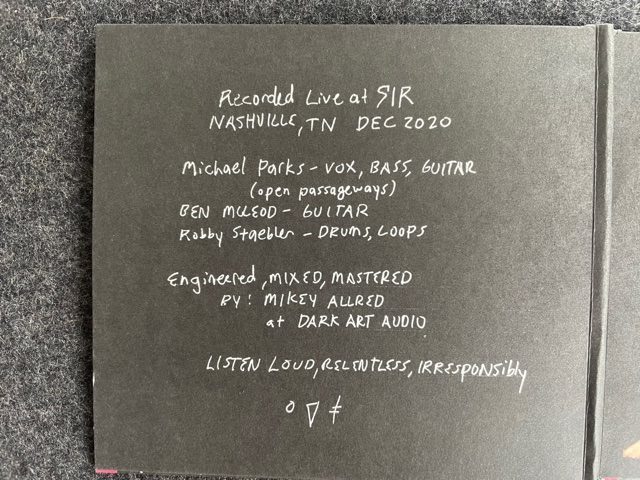 Recorded Live at SIR
NASHVILLE, TN DEC 2020
Michael Parks - VOX, BASS, GUITAR
(open passageways)
BEN MCLEOD - GUITAR
Robby Staebler - DRUMS, LOOPS
Engineered, MIXED, MASTERED
BY: MIKEY ALLRED
at DARK ART AUDIO
LISTEN LOUD, RELENTLESS, IRRESPONSIBLY